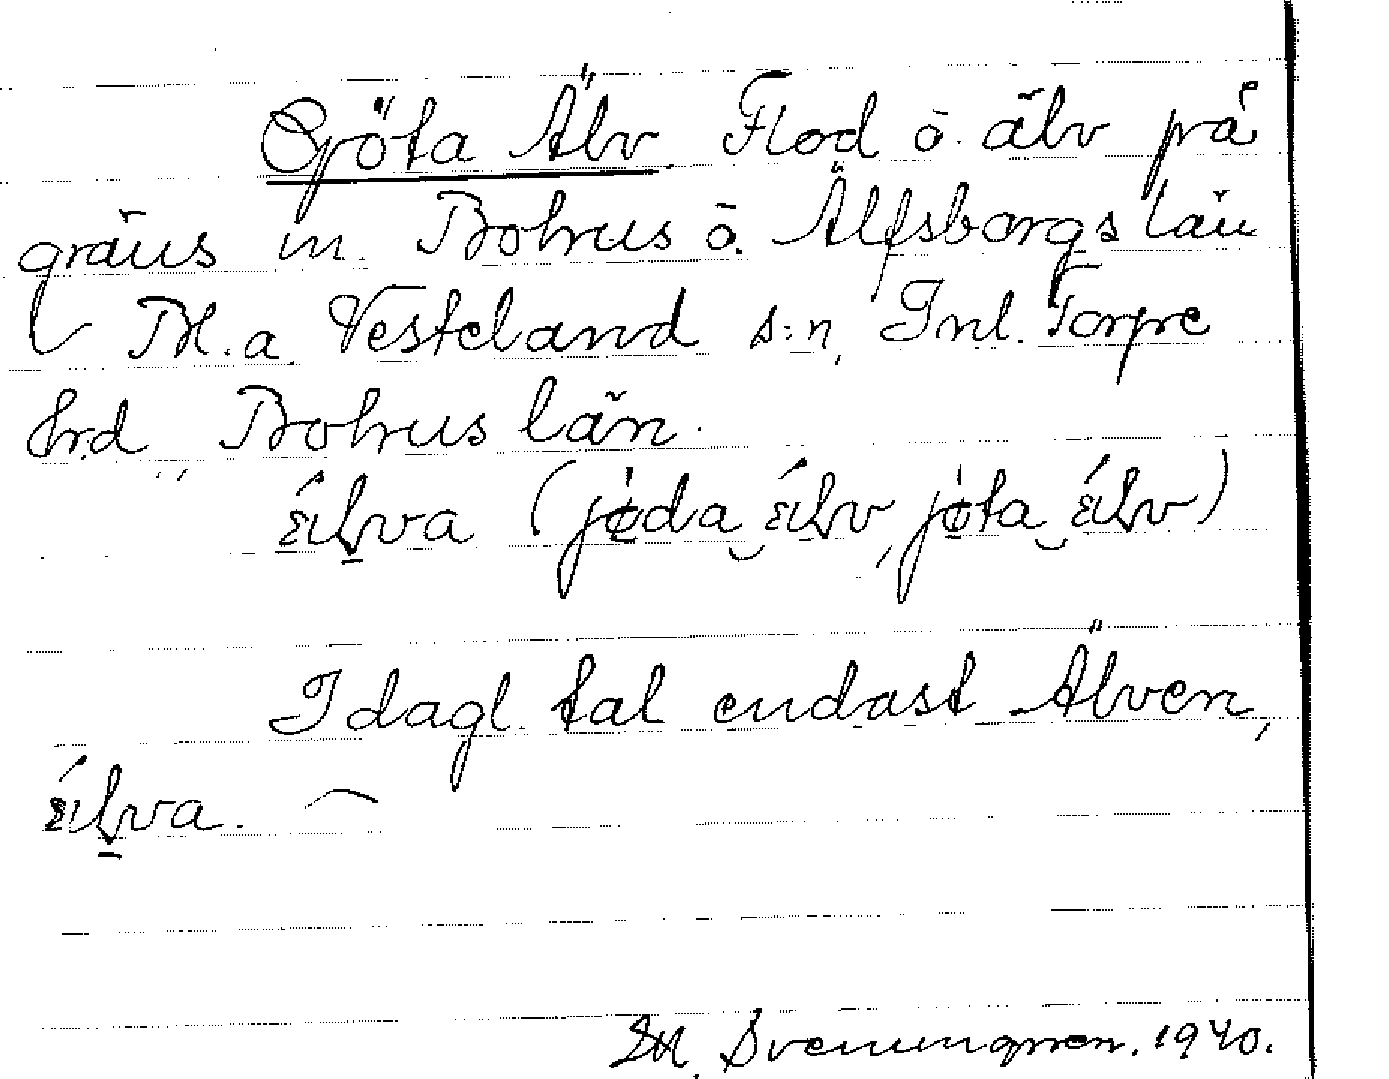 Göta Älv. Flod o. älv på
gräns m. Bohus o. Älfsborgs län
Bl.a. Vesteland s:n, Inl. Torpe
hrd, Bohus län.
ɛ́ılva (jø̀da‿ɛ́ılv, jø̀ta‿ɛ́ılv)
I dagl. tal endast Älven,
ɛ́ılva.
M. Svenungsson. 1940.